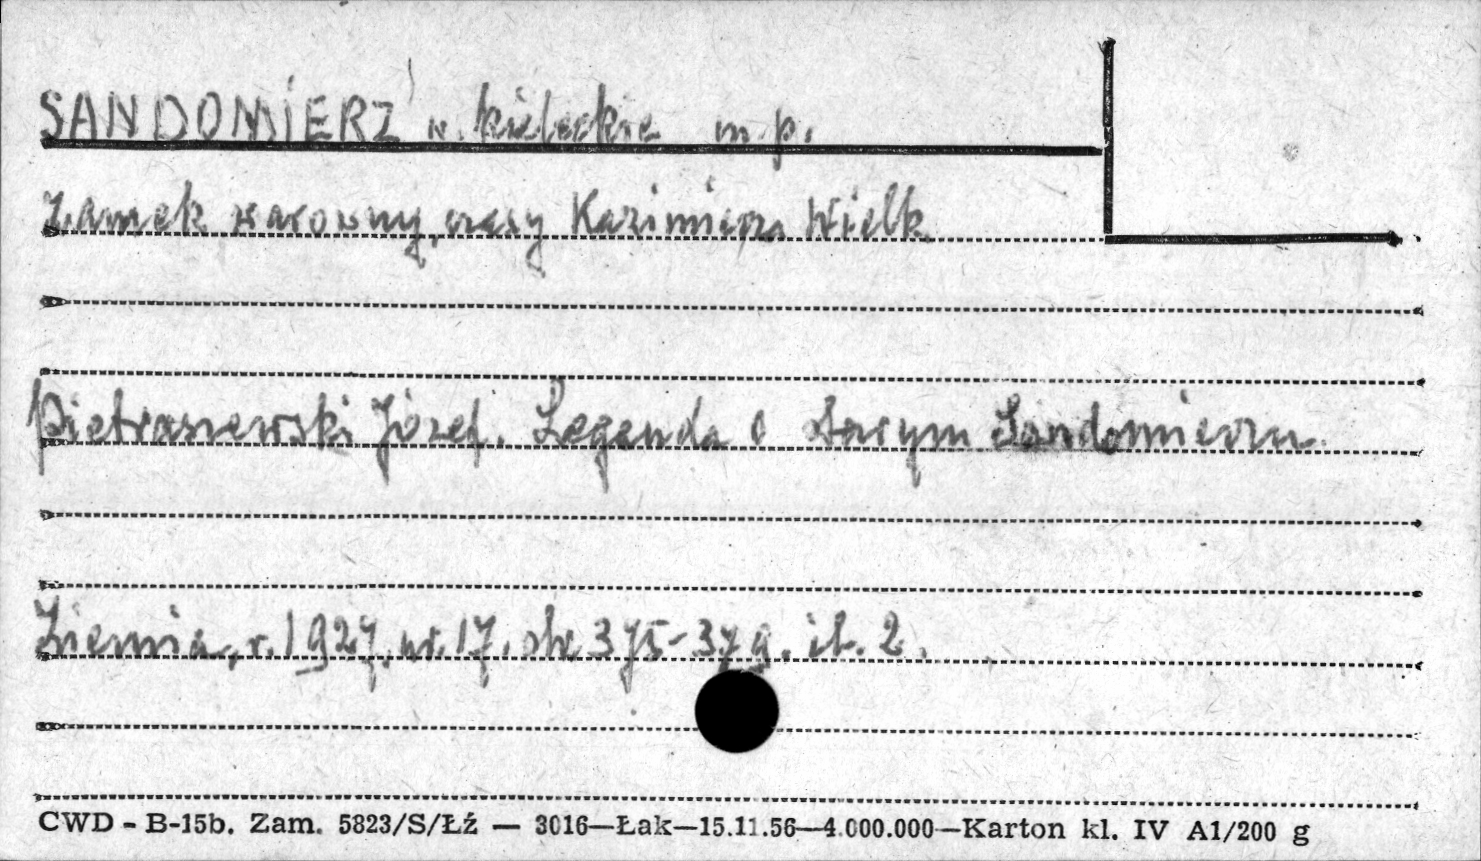 SANDOMIERZ w. kieleckie m. p.
Zamek warowny, czasy Kazimierza Wielk.
Pietraszewski Józef. Legenda o starym Sandomierzu.
Ziemia, r. 1927, nr. 17, str. 375-379. il. 2.
CWD - B-15b. Zam. 5823/S/Łź — 3016—Łak—15.11.56—4.000.000—Karton kl. IV A1/200 g